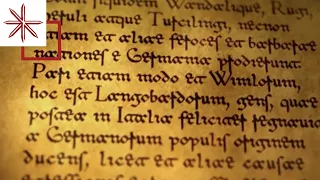 siquidem Wandalique, Rugi,
Heruli atque Turcilingi, necnon
etiam et aliae feroces et barbarae
nationes e Germania prodierunt.
Pari etiam modo et Winilorum,
hoc est Langobardorum, gens, quae
postea in Italia feliciter regnavit,
a Germanorum populis originem
ducens, licet et aliae causae